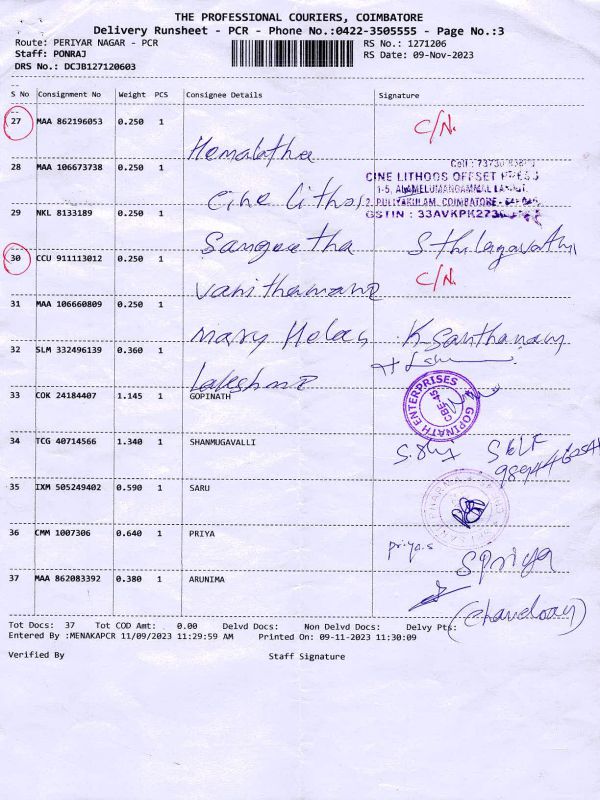 THE PROFESSIONAL COURIERS, COIMBATORE
Delivery Runsheet - PCR - Phone No.:0422-3505555 - Page No.:3
Route: PERIYAR NAGAR - PCR RS No.: 1271206
Staff: PONRAJ RS Date: 09-Nov-2023
DRS No.: DCJB127120603
S No Consignment No Weight PCS Consignee Details Signature
27 MAA 862196053 0.250 1 Hemalatha C/N.
28 MAA 106673738 0.250 1 Cine Lithos
CINE LITHOS OFFSET PRESS
1-5, ALAMELUMANGAMMAL LAYOUT,
2, PULIYAKULAM, COIMBATORE -
GSTIN : 33AVKPK273
29 NKL 8133189 0.250 1 Sangeetha S Thilagavathi
30 CCU 911113012 0.250 1 Vanithamani C/N.
31 MAA 106660809 0.250 1 Mary K Santhanam
32 SLM 332496139 0.360 1 Lakshmi
33 COK 24184407 1.145 1 GOPINATH
GOPINATH ENTERPRISES
CBE-45
34 TCG 40714566 1.340 1 SHANMUGAVALLI
35 IXM 505249402 0.590 1 SARU
36 CMM 1007306 0.640 1 PRIYA priya.s S priya
37 MAA 862083392 0.380 1 ARUNIMA
Tot Docs: 37 Tot COD Amt: 0.00 Delvd Docs: Non Delvd Docs: Delvy Pts:
Entered By :MENAKAPCR 11/09/2023 11:29:59 AM Printed On: 09-11-2023 11:30:09
Verified By Staff Signature